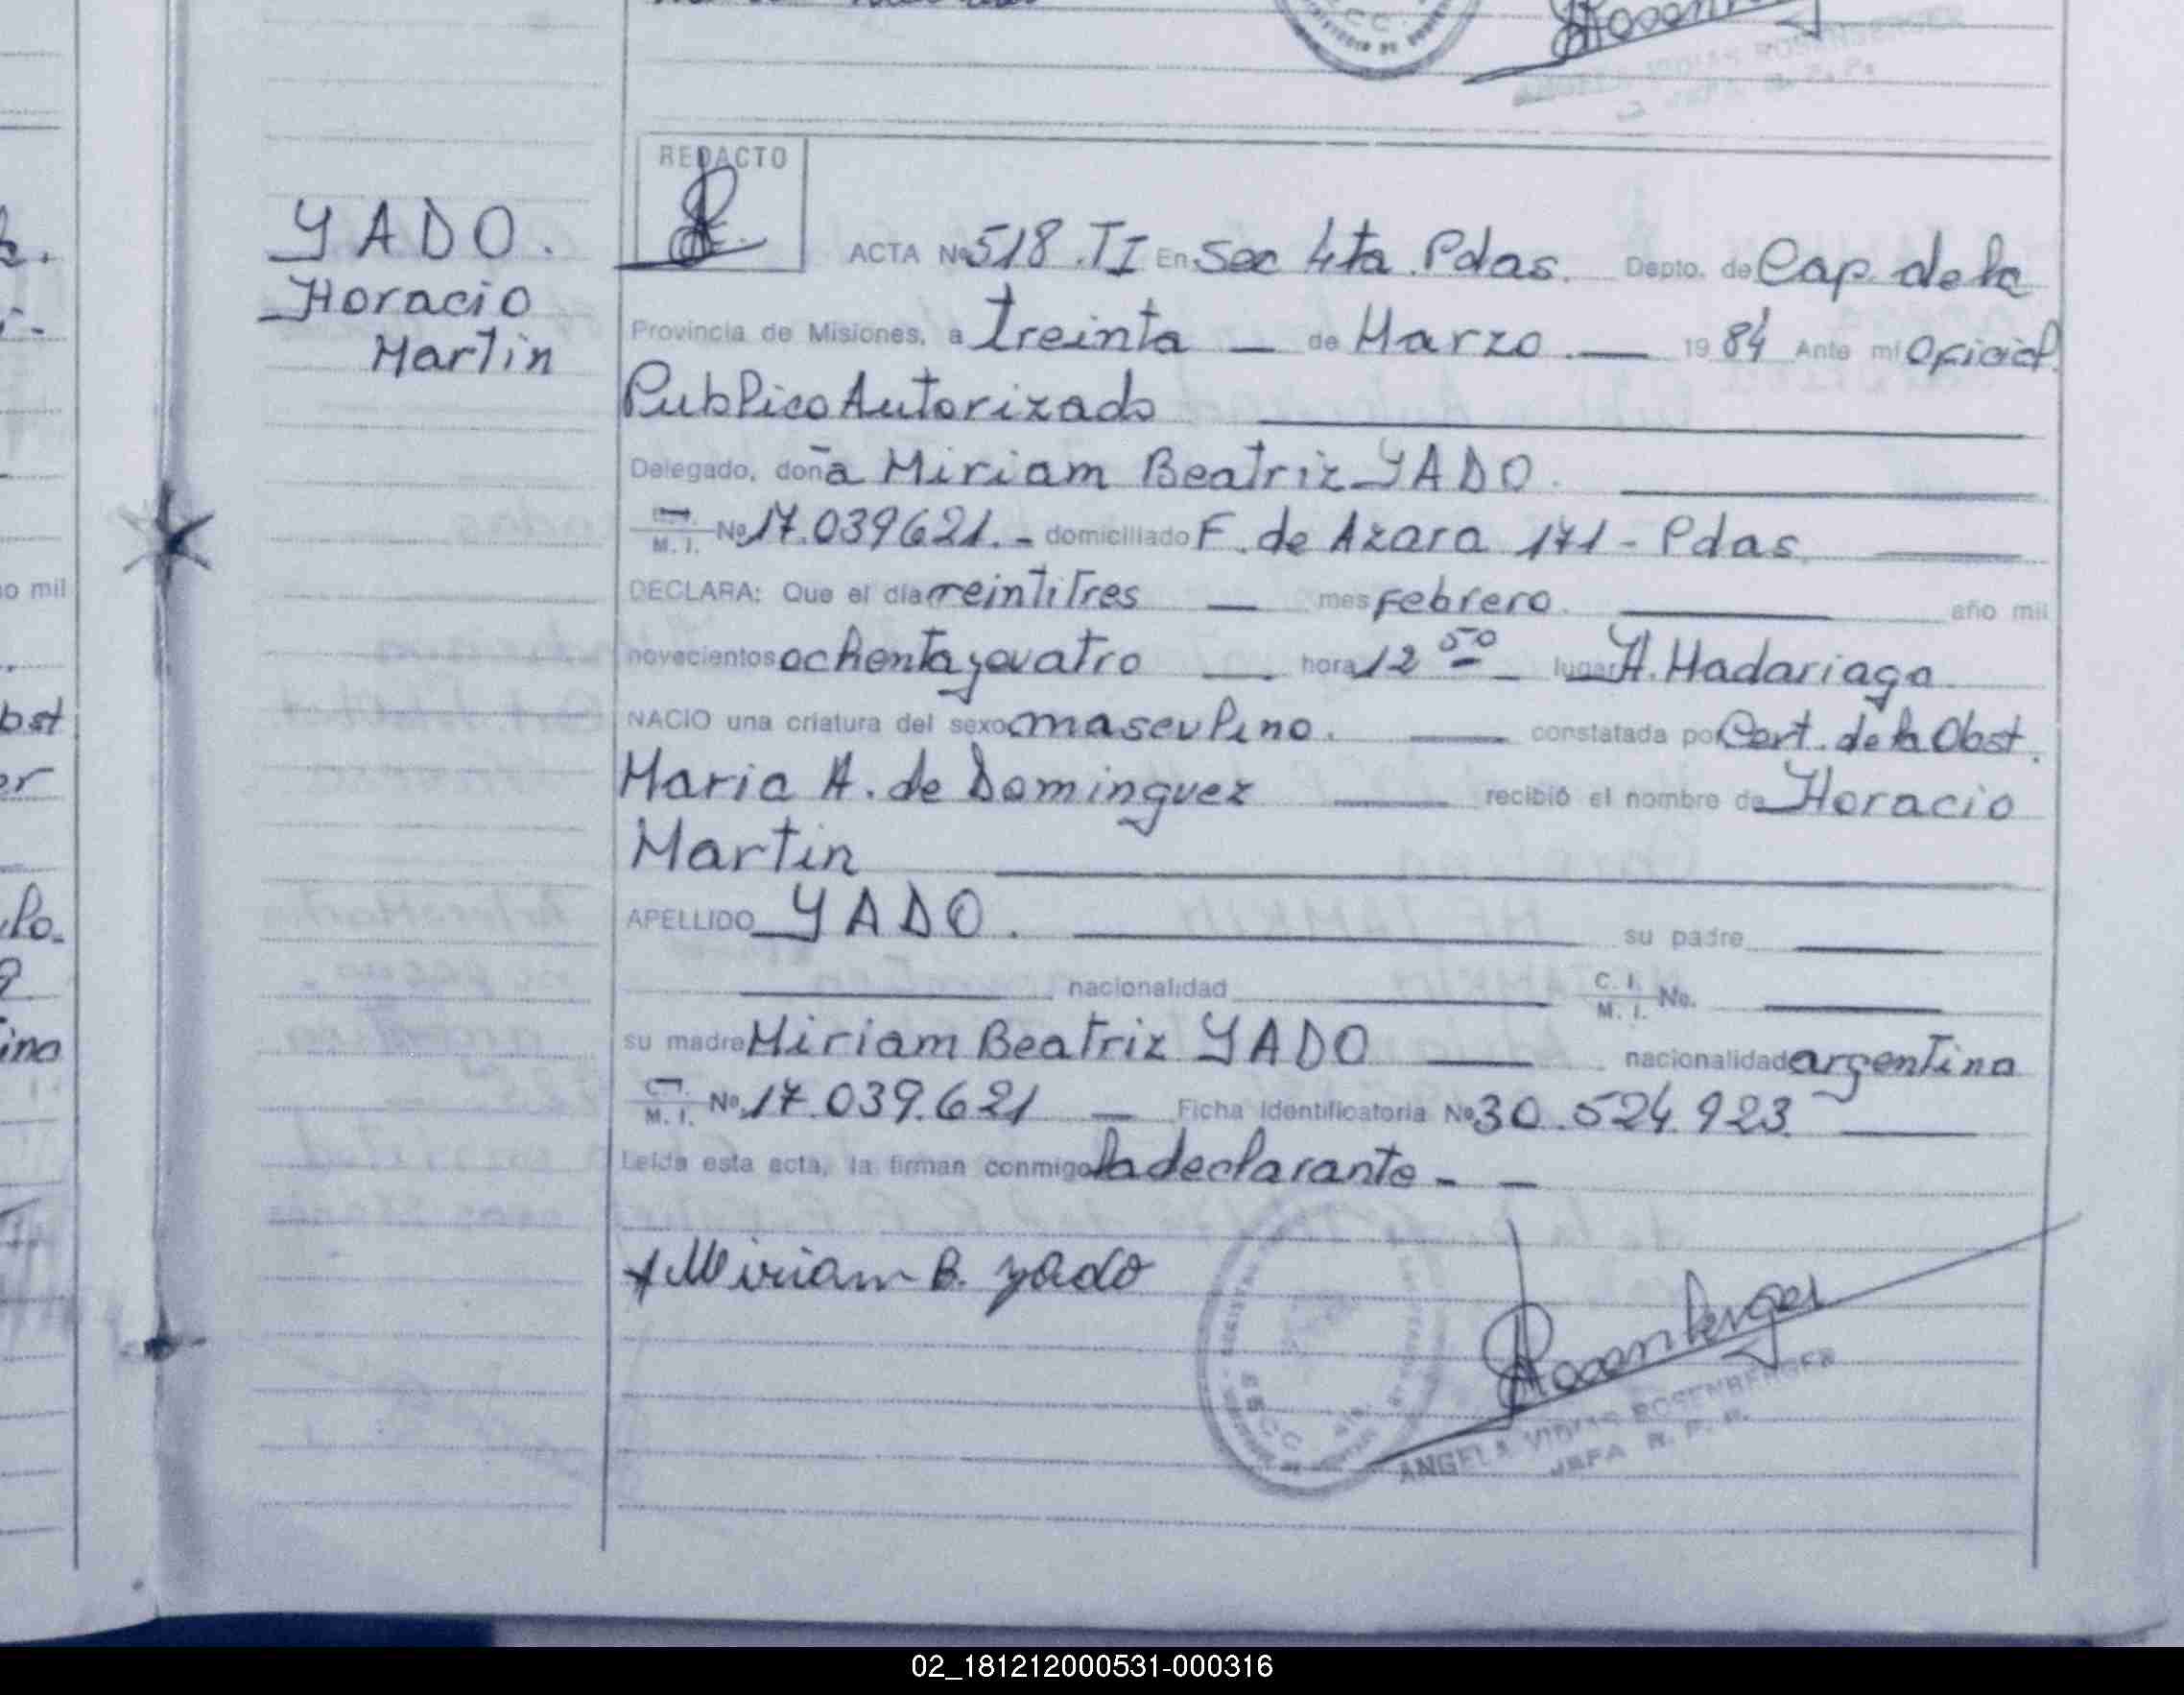 REDACTO
YADO.
Horacio
Martin
ACTA Nº 518.TI En Sec 4ta. Pdas. Depto. de Cap. de la
Provincia de Misiones, a treinta — de Marzo. — 19 84 Ante mi Oficial
Publico Autorizado
Delegado, doña Miriam Beatriz YADO.
M. I. Nº 17.039621. - domiciliado F. de Azara 171 - Pdas.
DECLARA: Que el día veintitres — mes febrero. año mil
novecientos ochenta y cuatro — hora 12 50 — lugar H. Madariaga
NACIO una criatura del sexo masculino. — constatada por Cert. de la Obst.
Maria A. de Dominguez — recibió el nombre de Horacio
Martin
APELLIDO YADO. su padre
nacionalidad C. I. M. I. No.
su madre Miriam Beatriz YADO — nacionalidad argentina
M. I. Nº 17.039.621 — Ficha Identificatoria Nº 30.524.923
Leída esta acta, la firman conmigo la declarante - —
Miriam B. Yado
Rosenberger
ANGELA VIDIAS ROSENBERGER
JEFA R. P. P.
o mil
bst
er
ina
02_181212000531-000316